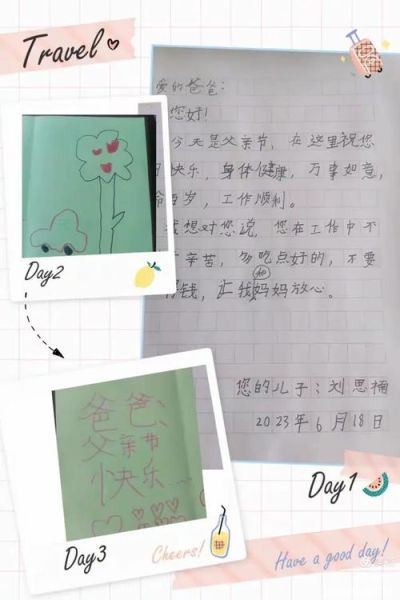 Travel
爱的爸爸：
您好！
今天是父亲节，在这里祝您
快乐，身体健康，万事如意，
百岁，工作顺利。
我想对您说，您在工作中不
辛苦，多吃点好的，不要
钱，让我和妈妈放心。
您的儿子：刘思楠
2023年6月18日
Day1
Day2
爸爸、
父亲节
快乐...
Day3
Cheers!
Have a good day!